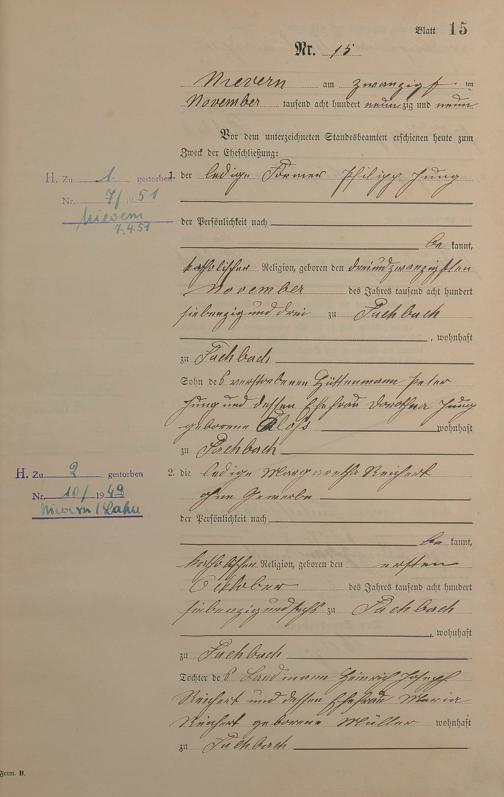 Blatt 15
Nr. 15
Nievern am zwanzigsten
November tausend acht hundert neunzig und neun
Vor dem unterzeichneten Standesbeamten erschienen heute zum
Zweck der Eheschließung:
H. Zu 1 gestorben
Nr. 7/1951
Nievern
7.4.51
1. der ledige Former Philipp Jung
der Persönlichkeit nach
be kannt,
katholischer Religion, geboren den dreiundzwanzigsten
November des Jahres tausend acht hundert
siebenzig und drei zu Fachbach
, wohnhaft
zu Fachbach
Sohn des verstorbenen Hüttenmann Peter
Jung und dessen Ehefrau Dorothea Jung
geborene wohnhaft
zu Fachbach
H. Zu 2 gestorben
Nr. 10/1949
Nievern/Lahn
2. die ledige Margaretha Reichert
ohne Gewerbe
der Persönlichkeit nach
be kannt,
katholischer Religion, geboren den ersten
Oktober des Jahres tausend acht hundert
siebenzig und sechs zu Fachbach
, wohnhaft
zu Fachbach
Tochter des Landmann Heinrich Joseph
Reichert und dessen Ehefrau Maria
Reichert geborene Müller wohnhaft
zu Fachbach
Form. B.